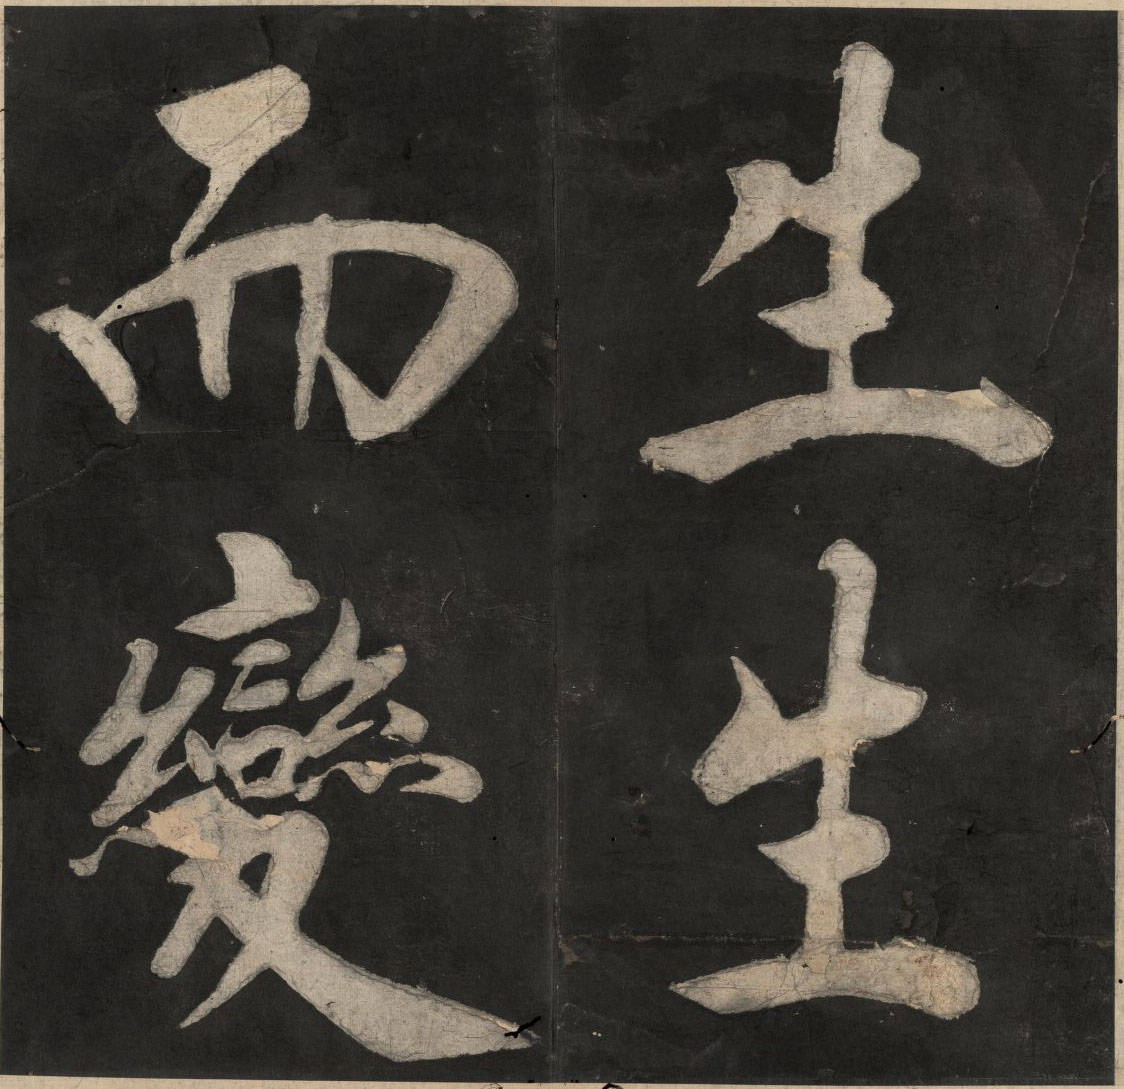 生生
而變